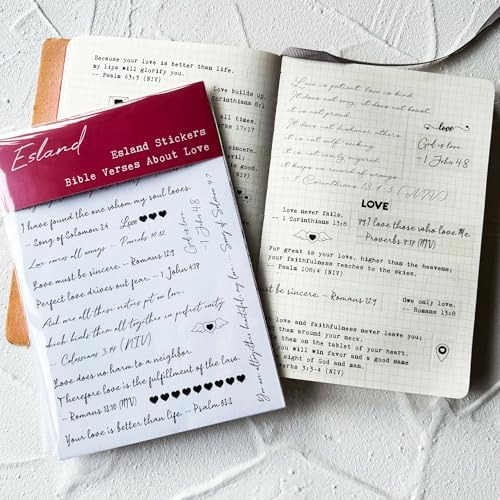 Because your love is better than life,
my lips will glorify you.
-- Psalm 63:3 (NIV)
Love builds up.
Corinthians 8:1
all times.
17:17
Esland
Esland Stickers
Bible Verses About Love
I have found the one whom my soul loves.
-- Song of Solomon 3:4
Love
Love covers all wrongs. -- Proverbs 10:12
God is love.
-- 1 John 4:8
Love must be sincere. -- Romans 12:9
Perfect love drives out fear. -- 1 John 4:18
And over all these virtues put on love,
which binds them all together in perfect unity.
-- Colossians 3:14 (NIV)
You are altogether beautiful, my love. -- Song of Solomon 4:7
Love does no harm to a neighbor.
Therefore love is the fulfillment of the law.
-- Romans 13:10 (NIV)
Your love is better than life. -- Psalm 63:3
Love is patient, love is kind.
It does not envy, it does not boast,
it is not proud.
It does not dishonor others,
it is not self-seeking,
it is not easily angered,
it keeps no record of wrongs.
1 Corinthians 13:4-5 (NIV)
love
God is love.
1 John 4:8
LOVE
Love never fails.
-- 1 Corinthians 13:8
I love those who love me.
-- Proverbs 8:17 (NIV)
For great is your love, higher than the heavens;
your faithfulness reaches to the skies.
-- Psalm 108:4 (NIV)
be sincere. -- Romans 12:9
Owe only love.
-- Romans 13:8
love and faithfulness never leave you;
them around your neck,
them on the tablet of your heart.
you will win favor and a good name
sight of God and man.
3:3-4 (NIV)